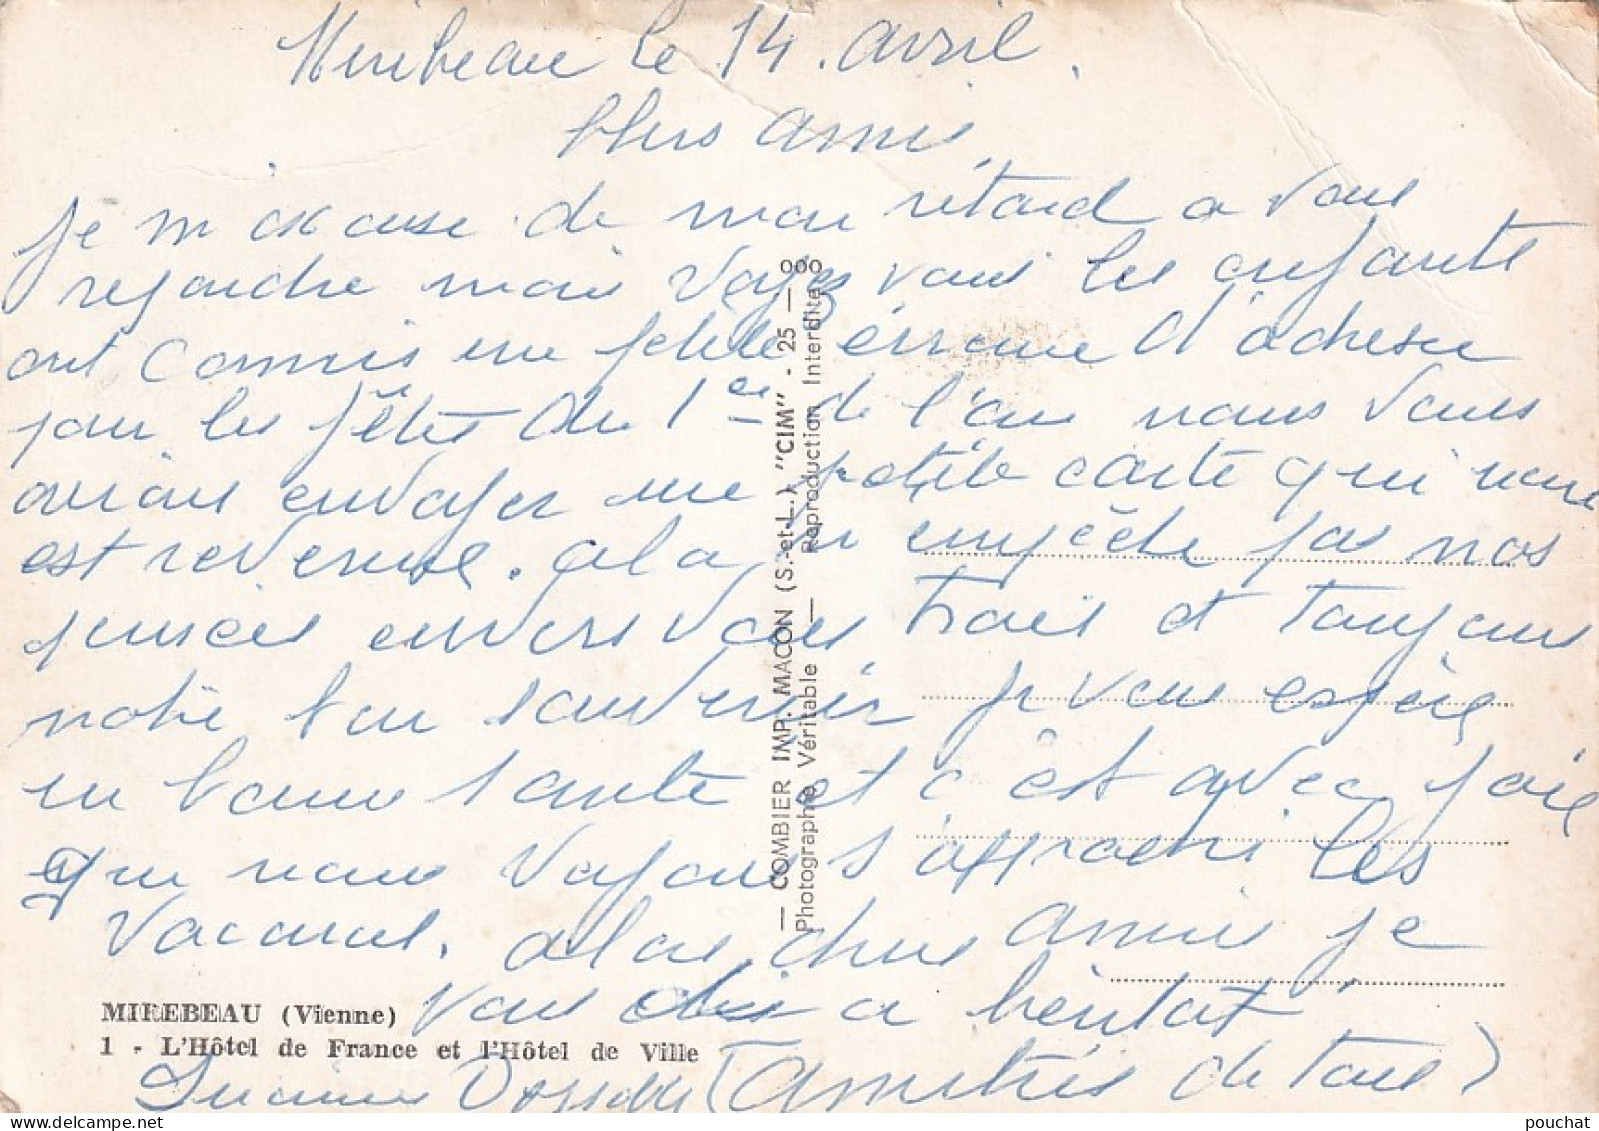 Mirebeau le 14 avril.
Chers amis,
Je m'excuse de mon retard a vous
repondre mais voyez vous les enfants
ont commis une petite erreure d'adresse
pour les fêtes du 1er de l'an nous vous
avions envoyer une petite carte qui nous
est revenue. cela n empêche pas nos
pensées envers vous trois et toujours
notre bon souvenir je vous espère
en bonne santé et c'est avec joie
que nous voyons s'approcher les
vacances. alors chers amis je
vous dis a bientot
(Amitiés de tous)
MIREBEAU (Vienne)
1 - L'Hôtel de France et l'Hôtel de Ville
— COMBIER IMP. MACON (S.-et-L.) "CIM" - 25 —
Photographie Véritable — Reproduction Interdite
pouchat